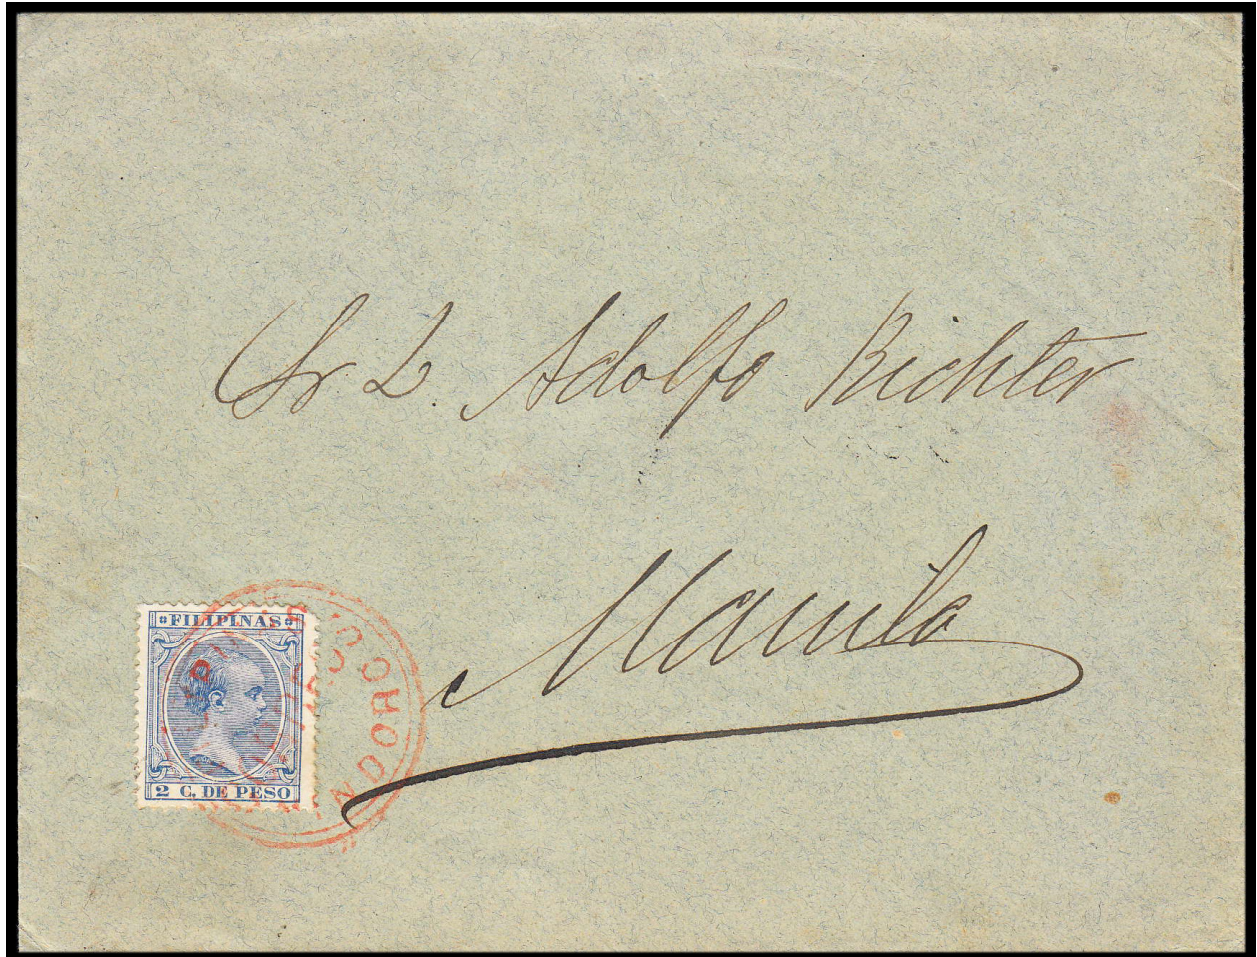 Sr. D. Adolfo Richter
Manila
FILIPINAS
2 C. DE PESO